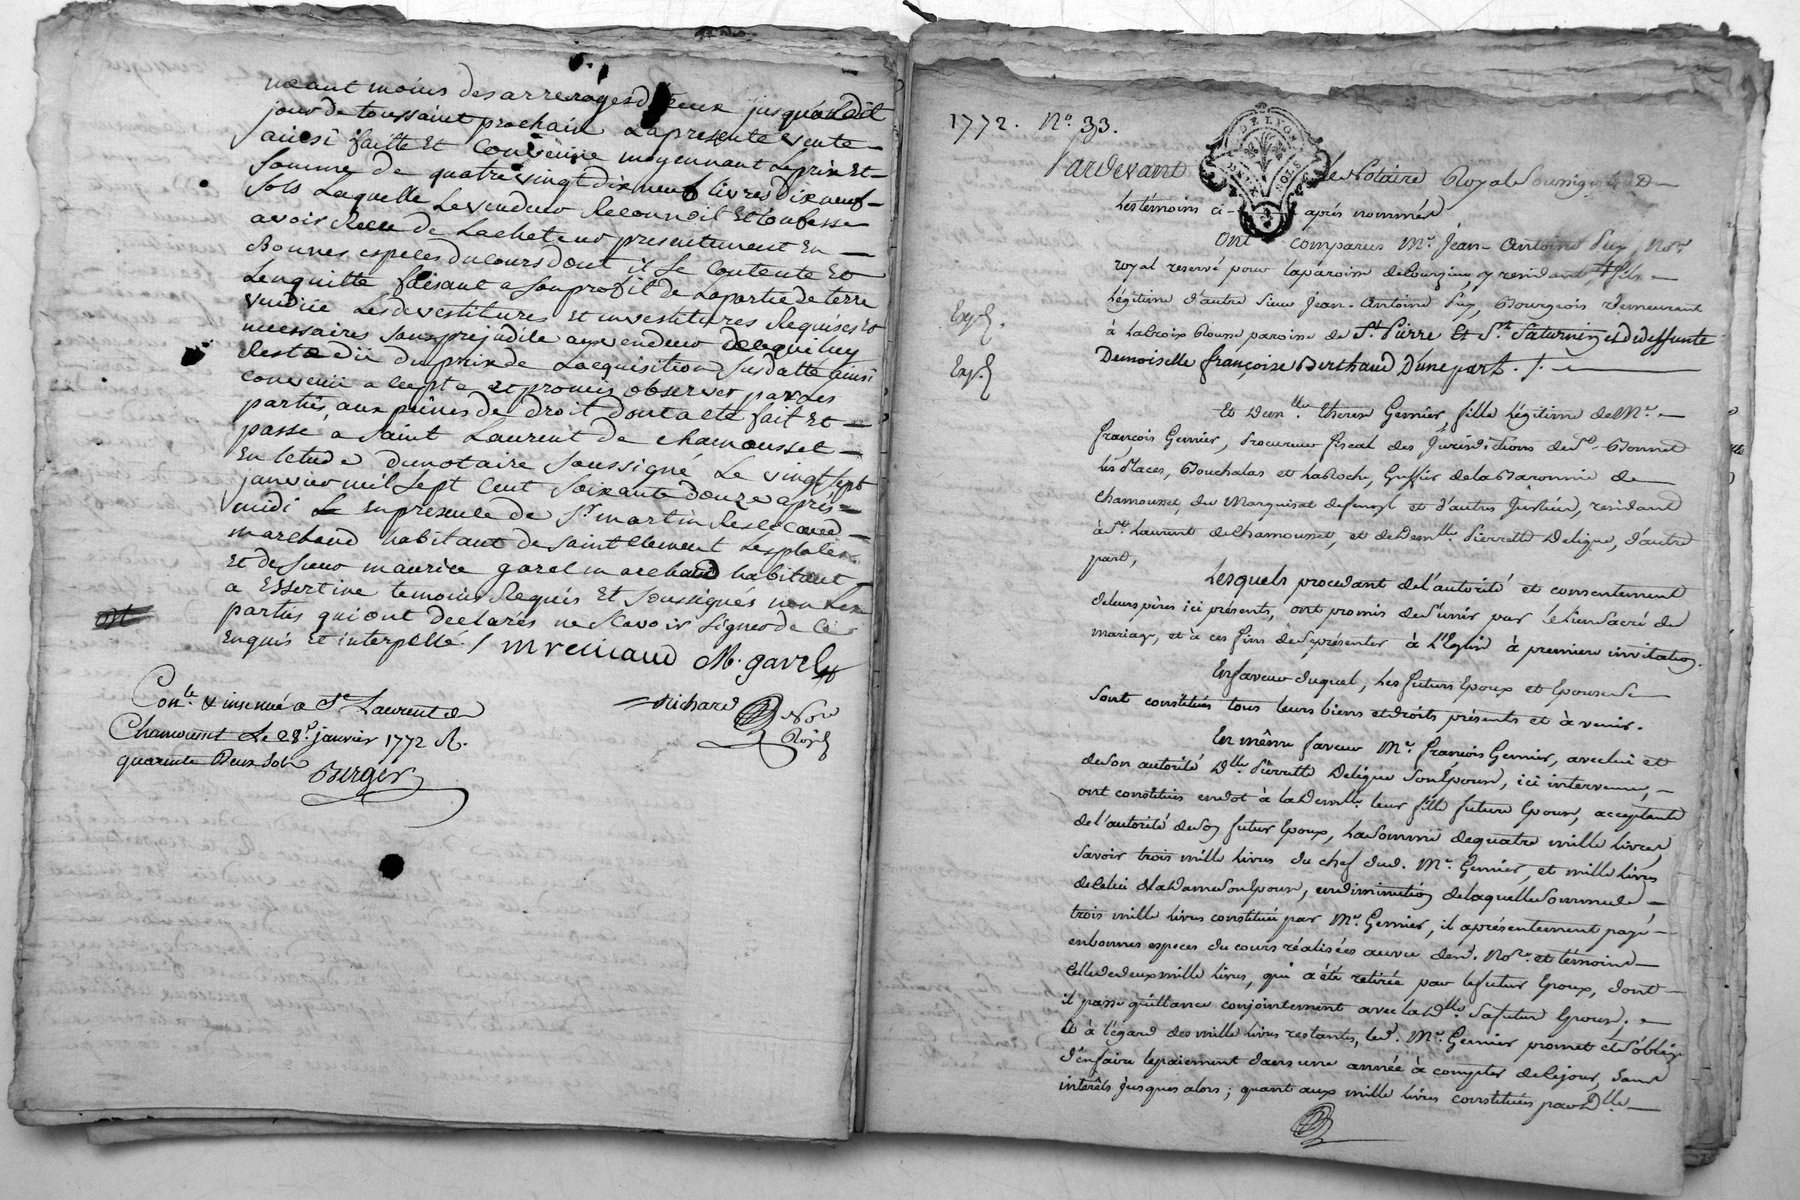 neant moins des arrerages d jusqu'audit
jour de toussaint prochain La presente vente
ainsi faitte Et Convenüe moyennant Le prix Et
Somme de quatre vingt dix neuf livres dix neuf
Sols Laquelle Le vendeur Reconnoit Et Confesse
avoir Receu de Lacheteur presentement En
Bonnes especes du cours dont il Se Contente Et
Len quitte faisant a Son profit de La partie de terre
venduë Les devestitures Et investitures Requises Et
necessaires Sans prejudice au vendeur de ce qui luy
Reste dü du prix de Lacquisition Susdatte ainsi
convenu accepté et promis observer par Les
parties, aux peines de droit dont a eté fait Et
passé a Saint Laurent de chamousset
En letude du notaire Soussigné Le vingt sept
janvier mil Sept Cent Soixante douze apres
midi En presence de Sr martin
marchand habitant de Saint Clement Les places
Et de Sieur maurice garel marchand habitant
a Essertine temoins Requis Et Soussignés non Les
parties qui ont declarés ne Scavoir Signer de Ce
Enquis Et interpellé / M. garel
Richard Nore
Royal
Conlé & insinué a St Laurent de
Chamousset Le 28e janvier 1772 R.
quarante Deux Sols
Berger
1772. No. 33.
DE LYON
DEUX SOLS
Pardevant Le Notaire Royal Soussigné &
Les témoins ci-après nommés
Ont comparus Me. Jean-Antoine Puy, Nore
royal reservé pour la paroisse de y résidant, fils
Légitime d'autre Sieur Jean-Antoine Puy, Bourgeois demeurant
à La Croix Rousse paroisse de St. Pierre Et St. Saturnin et de deffunte
Demoiselle françoise Berthaud D'une part. /.
Exp.
Exp.
Et Demlle. therese Gernier, fille légitime de Me.
françois Gernier, Procureur fiscal des Jurisdictions de St. Bonnet
les Places, Bouchalas et la Roche, Greffier de la Baronnie de
Chamousset, du Marquisat de et d'autres Justices, résidant
à St. Laurent de Chamousset, et de Demlle Pierrette Deligue, d'autre
part,
Lesquels procedant de l'autorité et consentement
de leurs pères ici présents, ont promis de S'unir par le lien Sacré du
mariage, et à ces fins de Se présenter à L'Eglise à premiere invitation.
En faveur duquel, Les futurs Epoux et Epouse Se
Sont constitués tous leurs biens et droits, présents et à venir.
En même faveur Me. François Gernier, avec lui et
de Son autorité Dlle. Pierrette Deligue Son Epouse, ici intervenue,
ont constitués en dot à la Demlle. leur fille future Epouse, acceptante
de l'autorité de Son futur Epoux, La Somme de quatre mille livres,
Savoir trois mille livres du chef dud. Me. Gernier, et mille livres
de Celui de la Dame Son Epouse, en diminution de laquelle Somme de
trois mille livres constituée par Me. Gernier, il a présentement payé
en bonnes especes du cours réalisées au vu dud. Nore. et témoins
Celle de deux mille livres, qui a été retirée par le futur Epoux, dont
il passe quittance conjointement avec la Dlle. Sa future Epouse;
Et à l'égard des mille livres restants, led. Me. Gernier promet et S'oblige
d'en faire le paiement dans une année à compter de Ce jour, Sans
intérêts jusques alors; quant aux mille livres constituées par lad. Dlle